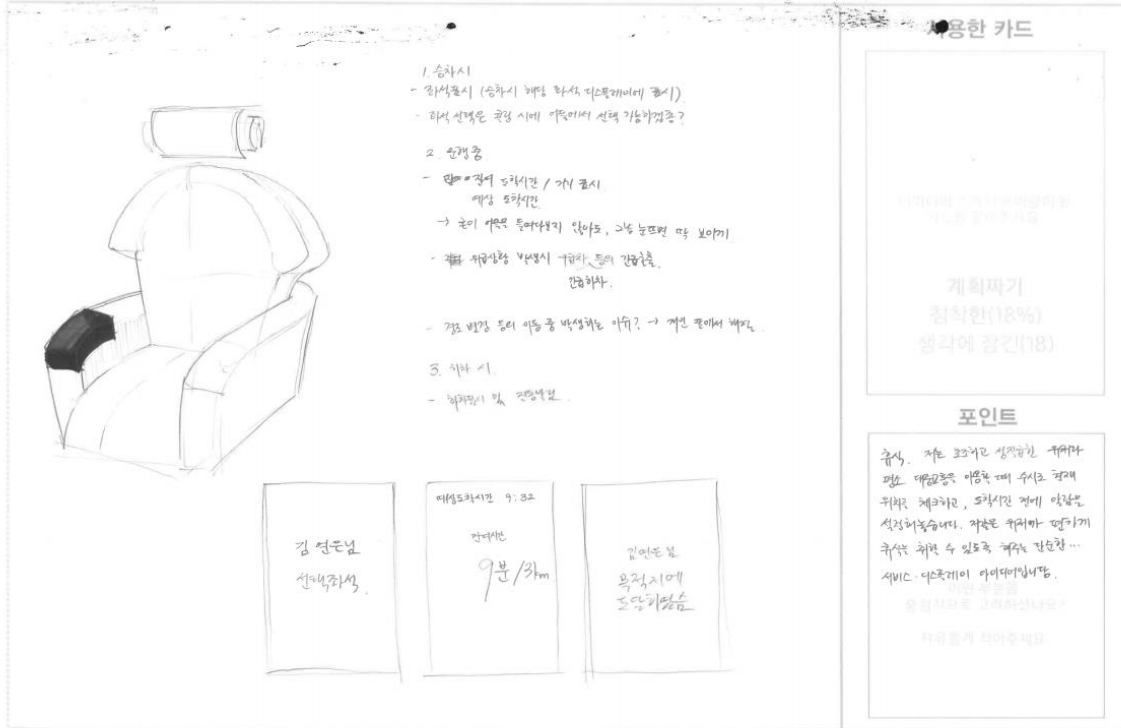 1. 승차시
- 좌석표시 (승차시 해당 좌석 디스플레이에 표시)
- 좌석 선택은 콜링 시에 어플에서 선택 가능하겠죠?
2. 운행중
- 잔여 도착시간 / 거리 표시
예상 도착시간
→ 굳이 어플을 들여다보지 않아도, 그냥 눈뜨면 딱 보이게
- 위급상황 발생시 구급차 등의 긴급호출,
긴급하차.
- 경로 변경 등의 이동 중 발생하는 이슈? → 화면에서 해결.
3. 하차 시
- 하차표시 및
김연은님
선택좌석.
예상도착시간 9:32
잔여시간
9분/3km
김연은님
목적지에
도달하였음
사용한 카드
계획짜기
침착한(18%)
생각에 잠긴(18)
포인트
휴식. 저는 초조하고 성격급한 유저라
평소 대중교통을 이용할 때 수시로 현재
위치를 체크하고, 도착시간 전에 알람을
설정해놓습니다. 저같은 유저가 편하게
휴식을 취할 수 있도록 해주는 단순한...
서비스·디스플레이 아이디어입니다.
이런 부분을
중점적으로 고려하셨나요?
자유롭게 적어주세요.